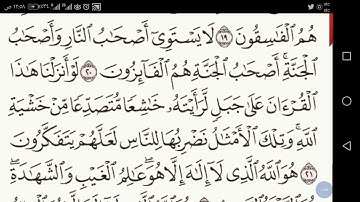 هُمُ ٱلْفَٰسِقُونَ ١٩ لَا يَسْتَوِىٓ أَصْحَٰبُ ٱلنَّارِ وَأَصْحَٰبُ
ٱلْجَنَّةِ ۚ أَصْحَٰبُ ٱلْجَنَّةِ هُمُ ٱلْفَآئِزُونَ ٢٠ لَوْ أَنزَلْنَا هَٰذَا
ٱلْقُرْءَانَ عَلَىٰ جَبَلٍ لَّرَأَيْتَهُۥ خَٰشِعًا مُّتَصَدِّعًا مِّنْ خَشْيَةِ
ٱللَّهِ ۚ وَتِلْكَ ٱلْأَمْثَٰلُ نَضْرِبُهَا لِلنَّاسِ لَعَلَّهُمْ يَتَفَكَّرُونَ
٢١ هُوَ ٱللَّهُ ٱلَّذِى لَآ إِلَٰهَ إِلَّا هُوَ ۖ عَٰلِمُ ٱلْغَيْبِ وَٱلشَّهَٰدَةِ ۖ